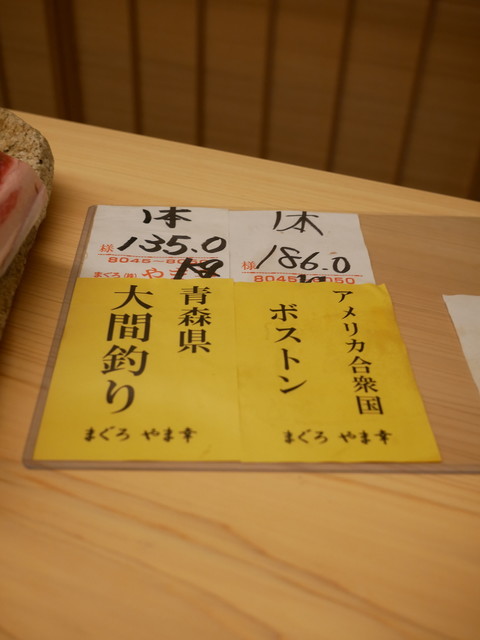 1本
様 135.0
8045~80
まぐろ(株) やま
18
青森県
大間釣り
まぐろ やま幸
1本
様 186.0
8045 8050
アメリカ合衆国
ボストン
まぐろ やま幸